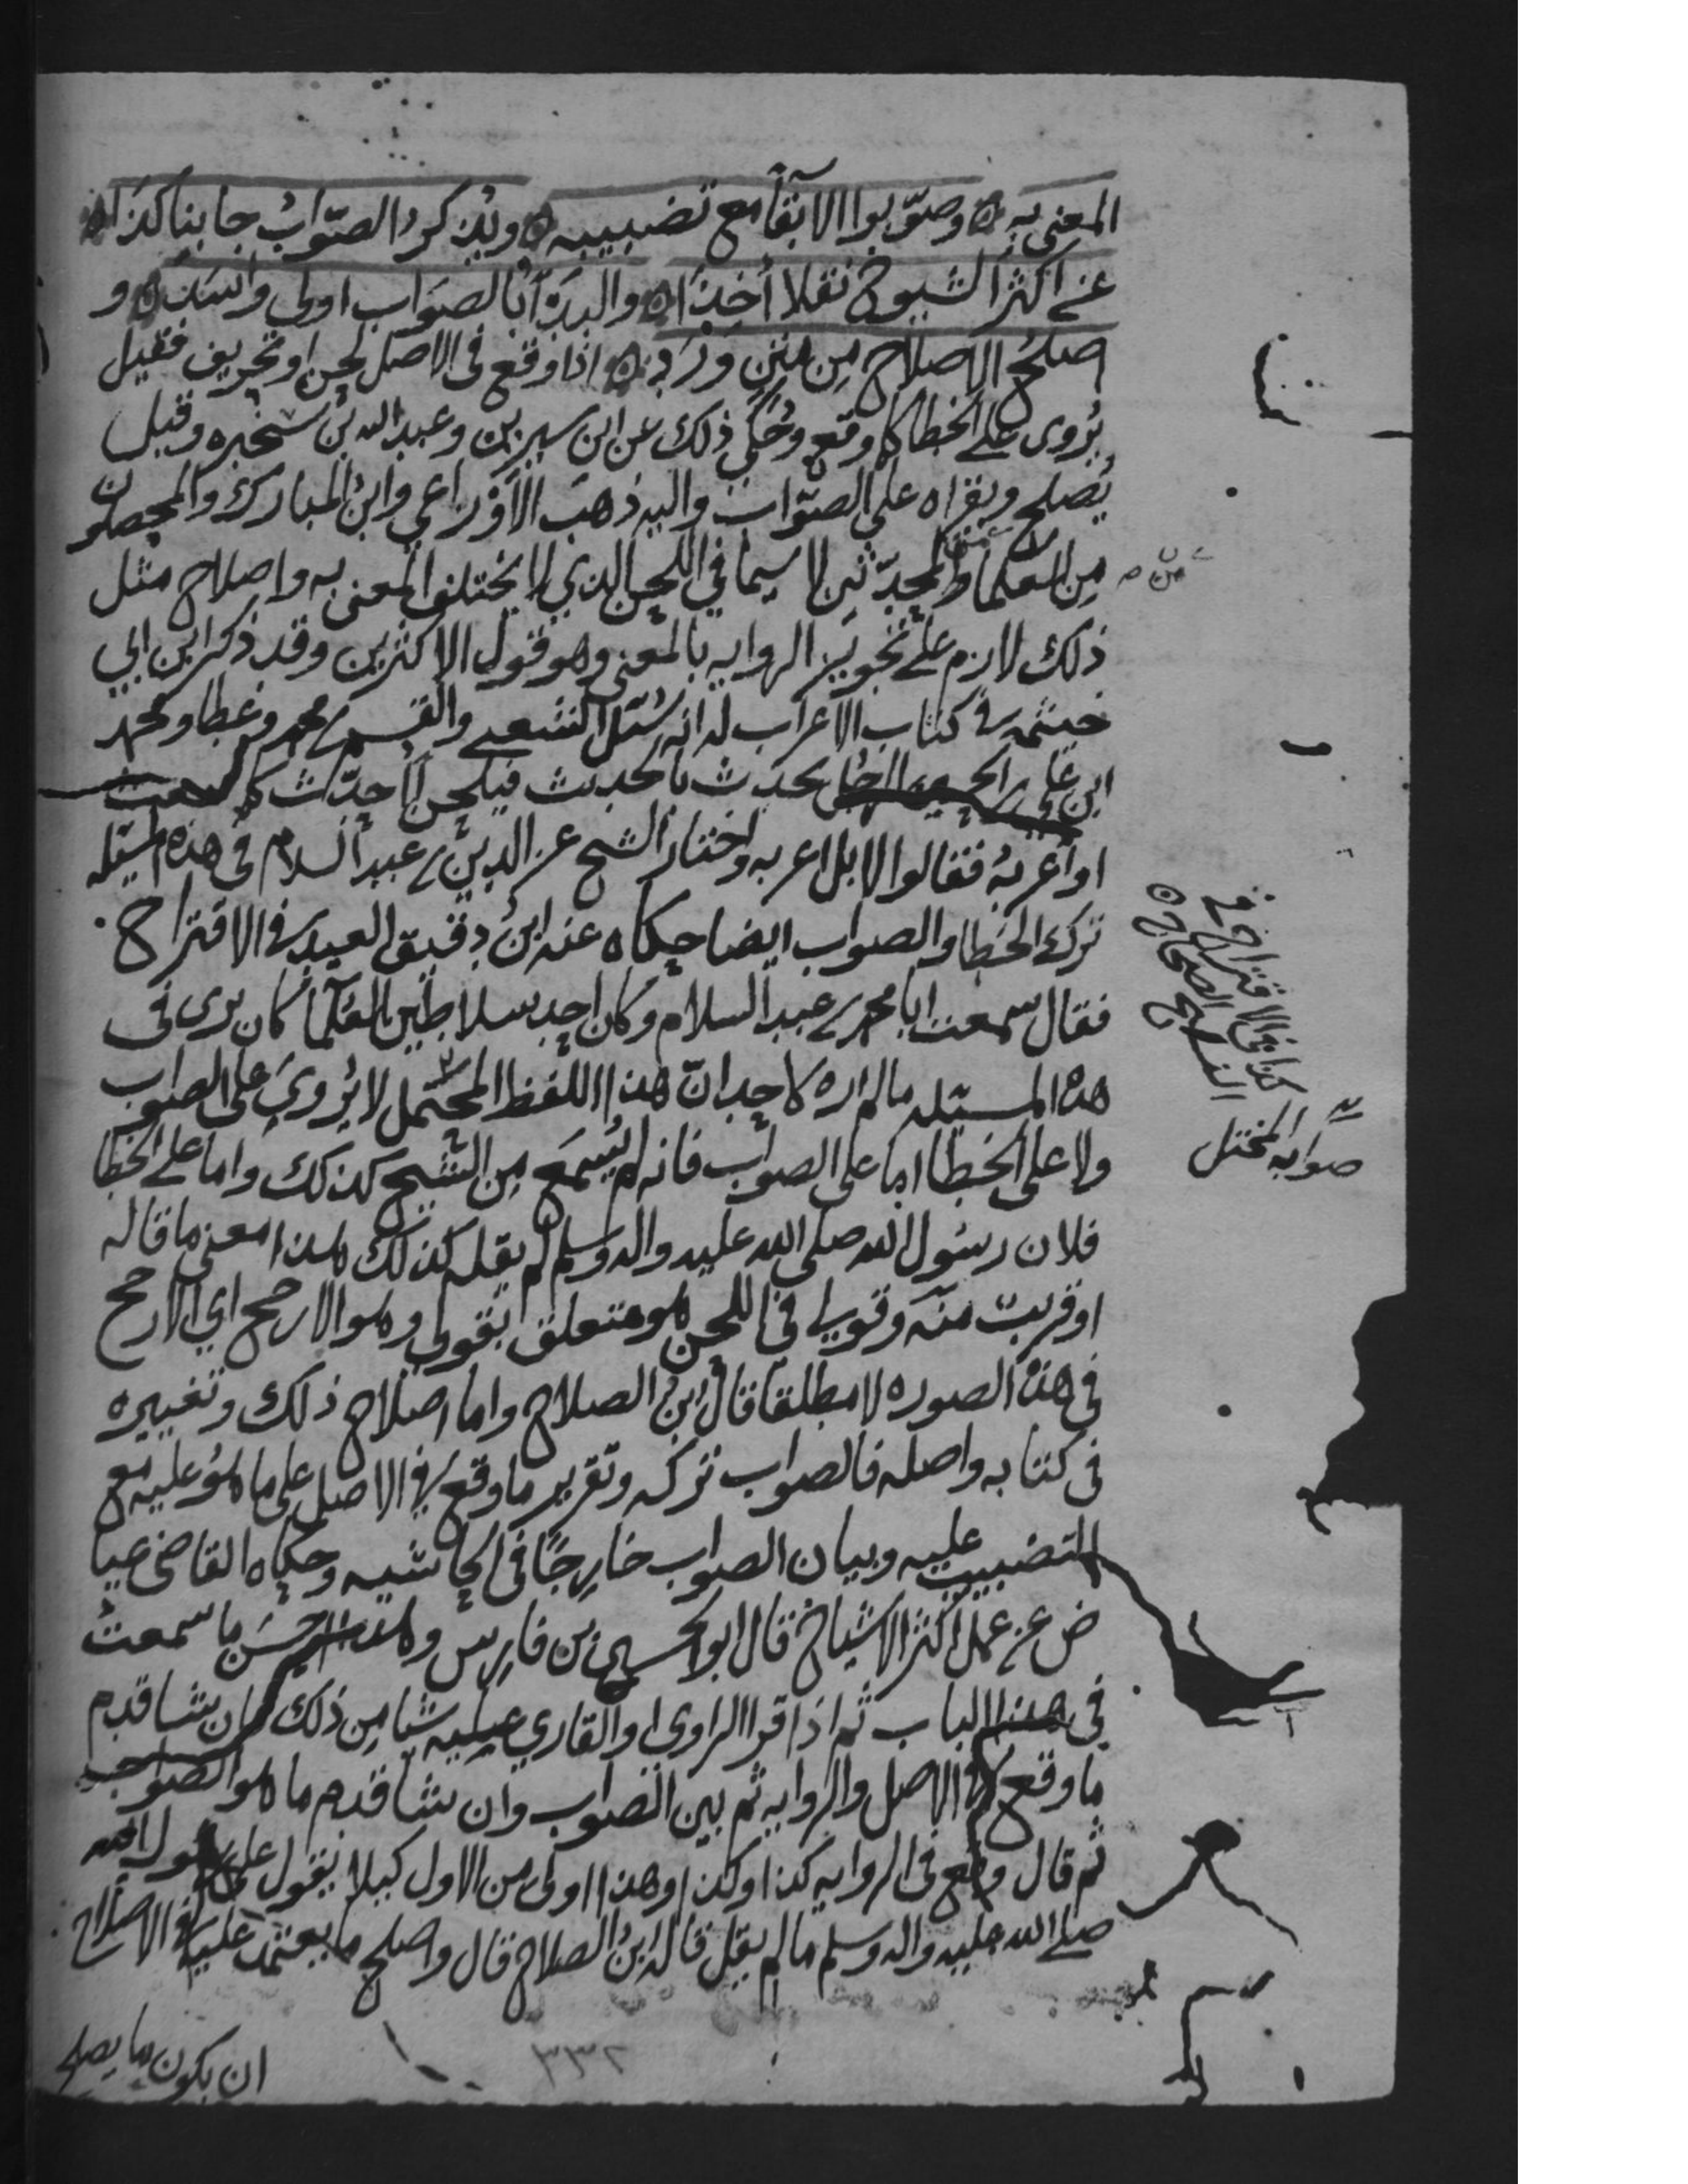 المعنى به ه وصوّبوا الابقا مع تضبيبه ه ويذكر الصواب جانبا كذا ه
عن اكثر الشيوخ نقلا أُخِذَا ه والبدءُ بالصواب اولى واسَدّ ه و
اصلحُ الاصلاح مِن متنٍ وَرَد ه اذا وقع في الاصل لحن او تحريف فقيل
يُروى على الخطا كما وقع وحُكي ذلك عن ابن سيرين وعبد الله بن سخبره وقيل
يُصلح ويقراه على الصواب واليه ذهب الاوزاعي وابن المبارك والمحصلون
مِن العلما والمحدّثين لا سيما في اللحن الذي لا يختلف المعنى به واصلاح مثل
ذلك لازم على تجويز الروايه بالمعنى وهو قول الاكثرين وقد ذكر ابن ابي
خيثمه في كتاب الاعراب له انه سُئل الشعبي والقسم بن محمد وعطا ومحمد
ابن علي بن الحسين الرجل يحدث بالحديث فيلحن أأحدّث كما سمعت
او أُعربُه فقالوا لا بل اعربه واختار الشيخ عز الدين بن عبد السلام في هذه المسئله
ترك الخطا والصواب ايضا حكاه عنه ابن دقيق العيد في الاقتراح
فقال سمعت ابا محمد بن عبد السلام وكان احد سلاطين العلما كان يرى في
هذه المسئله ما لم اره لاحد انّ هذا اللفظ المحتمل لا يُروى على الصواب
ولا على الخطا اما على الصواب فانه لم يُسمَع مِن الشيخ كذلك واما على الخطا
فلان رسول الله صلى الله عليه واله وسلم لم يقله كذلك هذا معنى ما قاله
او قريب منه وقولي في اللحن هو متعلق بقولي وهو الارجح اي الارجح
في هذه الصوره لا مطلقا قال ابن الصلاح واما اصلاح ذلك وتغييره
في كتابه واصله فالصواب تركه وتقرير ما وقع في الاصل على ما هو عليه مع
التضبيب عليه وبيان الصواب خارجًا في الحاشيه وحكاه القاضي عيا
ض عن عمل اكثر الاشياخ قال ابو الحسين بن فارس وهذا احسن ما سمعت
في هذا الباب ثم اذا قرا الراوي او القاري عليه شيا من ذلك فان شا قدم
ما وقع في الاصل والروايه ثم بين الصواب وان شا قدم ما هو الصواب
ثم قال وقع في الروايه كذا وكذا وهذا اولى من الاول كيلا يقول على رسول الله
صلى الله عليه واله وسلم ما لم يقل قاله ابن الصلاح قال واصلح ما يعتمد عليه في الاصلاح
ان يكون ما يصلح
من
كذا في الاقتراح في
النسخ الصحاح ه
صوابه المختل
٢٣٢